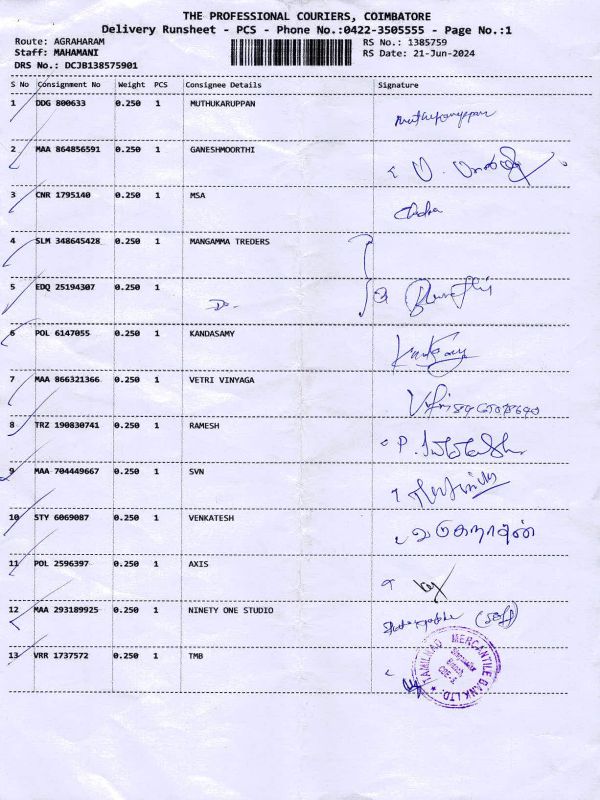 THE PROFESSIONAL COURIERS, COIMBATORE
Delivery Runsheet - PCS - Phone No.:0422-3505555 - Page No.:1
Route: AGRAHARAM RS No.: 1385759
Staff: MAHAMANI RS Date: 21-Jun-2024
DRS No.: DCJB138575901
S No Consignment No Weight PCS Consignee Details Signature
1 DDG 800633 0.250 1 MUTHUKARUPPAN Muthukaruppan
2 MAA 864856591 0.250 1 GANESHMOORTHI
3 CNR 1795140 0.250 1 MSA
4 SLM 348645428 0.250 1 MANGAMMA TREDERS
5 EDQ 25194307 0.250 1 Do
6 POL 6147055 0.250 1 KANDASAMY
7 MAA 866321366 0.250 1 VETRI VINYAGA
8 TRZ 190830741 0.250 1 RAMESH
9 MAA 704449667 0.250 1 SVN
10 STY 6069087 0.250 1 VENKATESH
11 POL 2596397 0.250 1 AXIS
12 MAA 293189925 0.250 1 NINETY ONE STUDIO
13 VRR 1737572 0.250 1 TMB
TAMILNAD MERCANTILE BANK LTD.